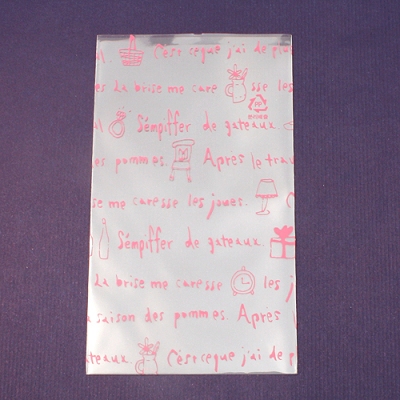 C'est ceque j'ai de plu
es La brise me care sse les
PP
Sempiffer de gateaux.
es pommes. Apres le trav
se me caresse les joues.
Sempiffer de gateaux.
La brise me caresse les j
a saison des pommes. Apres
teaux. C'est ceque j'ai de p